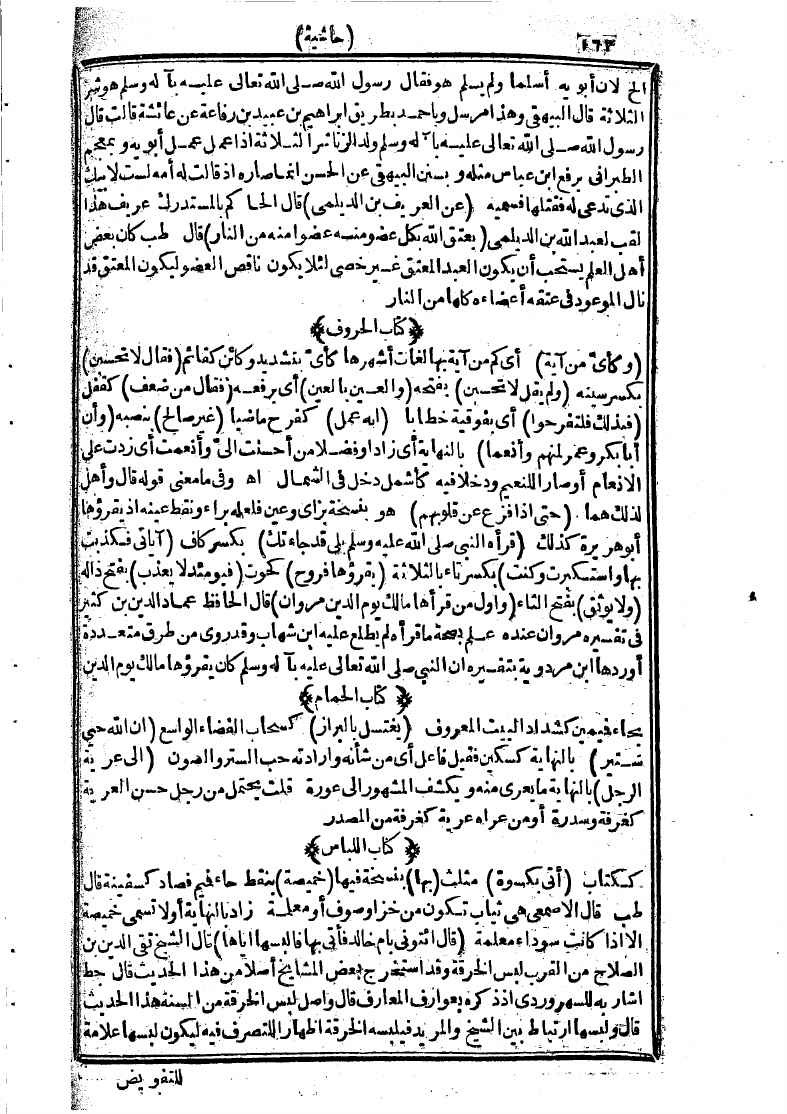 ١٦٣ (حاشية)
الخ لان أبويه أسلما ولم يسلم هو فقال رسول الله صلى الله تعالى عليه بآله وسلم هو شر
الثلاثة قال البيهقى وهذا مرسل وباحمد بطريق ابراهيم بن عبيد بن رفاعة عن عائشة قالت قال
رسول الله صلى الله تعالى عليه بآله وسلم ولد الزنا شر الثلاثة اذا عمل عمل أبويه وبمعجم
الطبرانى برفع ابن عباس مثله وبسنن البيهقى عن الحسن انما صاره اذ قالت له أمه لست لابيك
الذى تدعى له فقتلها فسميه (عن العريف بن الديلمى) قال الحاكم بالمستدرك عريف هذا
لقب لعبد الله بن الديلمى (يعتق الله بكل عضو منه عضوا منه من النار) قال طب كان بعض
أهل العلم يستحب أن يكون العبد المعتق غير خصى لئلا يكون ناقص العضو ليكون المعتق قد
نال الموعود فى عتقه أعضاءه كلها من النار
﴿كتاب الحروف﴾
(وكأىّ من آية) أى كم من آية بها لغات أشهرها كأىّ بتشديد وكائن كقائم (فقال لا تحسبن)
بكسر سينه (ولم يقل لا تحسبن) بفتحه (والعين بالعين) أى برفعه (فقال من ضعف) كقفل
(فبذلك فلتفرحوا) أى بفوقية خطابا (انه عمل) كفرح ماضيا (غير صالح) بنصبه (وأن
أبا بكر وعمر لمنهم وأنعما) بالنهاية أى زادا وفضلا من أحسنت الىّ وأنعمت أى زدت على
الانعام أوصارا للنعيم ودخلا فيه كأشمل دخل فى الشمال اه وفى مامعنى قوله قال وأهل
لذلك هما (حتى اذا فزع عن قلوبهم) هو بنسخة بزاى وعين فلعله براء ونقط عينه اذ يقرؤها
أبو هريرة كذلك (قرأه النبى صلى الله عليه وسلم بلى قد جاءتك) بكسر كاف (آياتى فكذبت
بها واستكبرت وكنت) بكسر تاء بالثلاثة (يقرؤها فروح) كحوت (فيومئذ لا يعذب) بفتح ذاله
(ولا يوثق) بفتح الثاء (وأول من قرأها مالك يوم الدين مروان) قال الحافظ عماد الدين بن كثير
فى تفسيره مروان عنده علم بصحة ما قرأه لم يطلع عليه ابن شهاب وقد روى من طرق متعددة
أوردها ابن مردويه بتفسيره ان النبى صلى الله تعالى عليه بآله وسلم كان يقرؤها مالك يوم الدين
﴿كتاب الحمام﴾
بحاء فميمين كشداد البيت المعروف (يغتسل بالبراز) كسحاب الفضاء الواسع (ان الله حيى
ستير) بالنهاية كسكين ففيل فاعل أى من شأنه وارادته حب الستر والصون (الى عرية
الرجل) بالنهاية ما يعرى منه ويكشف المشهور الى عورة قلت يحتمل من رجل حسن العرية
كغرفة وسدرة أو من عراه عرية كغرفة من المصدر
﴿كتاب اللباس﴾
ككتاب (أتى بكسوة) مثلث (بها) بنسخة فيها (خميصة) بنقط خاء فميم فصاد كسفينة قال
طب قال الاصمعى هى ثياب تكون من خز أو صوف أو معلمة زاد بالنهاية أولا تسمى خميصة
الا اذا كانت سوداء معلمة (قال ائتونى بام خالد فأتى بها فالبسها اياها) قال الشيخ تقى الدين بن
الصلاح من القرب لبس الخرقة وقد استخرج بعض المشايخ أصلا من هذا الحديث قال جط
اشار به للسهروردى اذ ذكره بعوارف المعارف قال وأصل لبس الخرقة من السنة هذا الحديث
قال ولبسها ارتباط بين الشيخ والمريد فيلبسه الخرقة اظهارا للتصرف فيه ليكون لبسها علامة
للتفويض